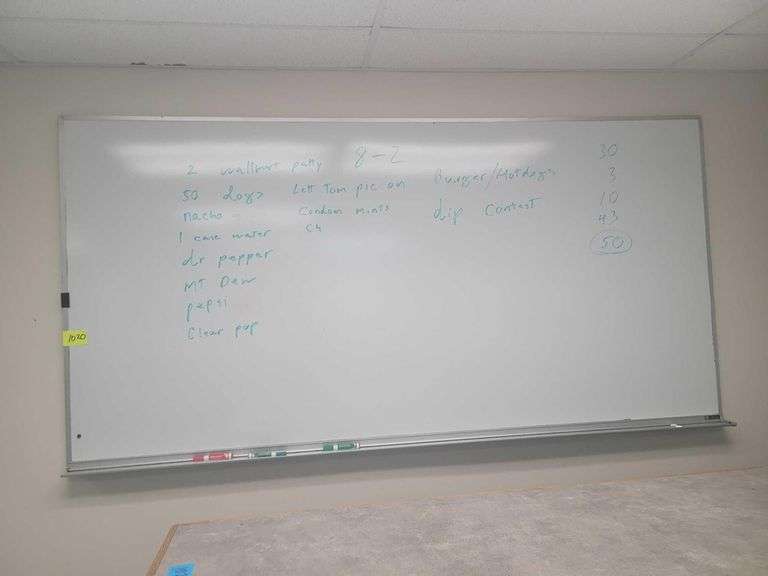 8-2
2 wallmart patty
50 dogs
nacho
1 case water
dr pepper
MT Dew
pepsi
Clear pop
Lett Tom pic on
Condom mints
C4
Burger/Hotdogs
dip Contest
30
3
10
43
50
1020